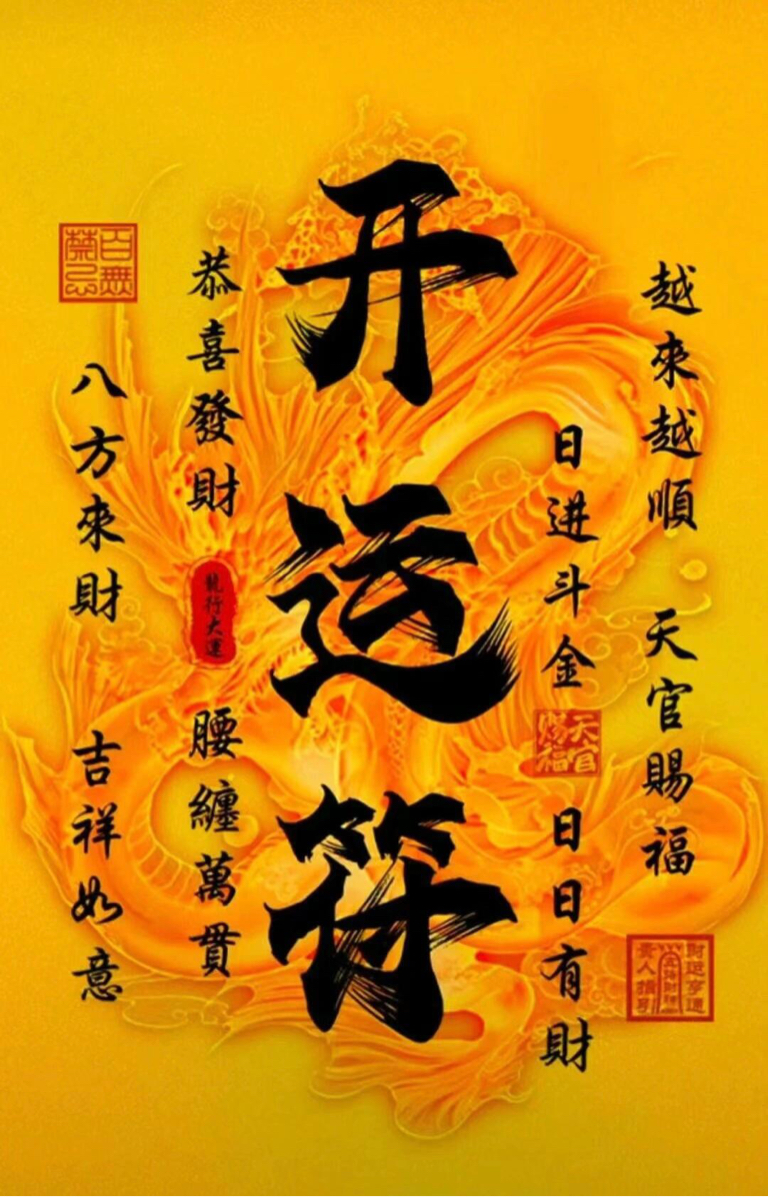 越來越順 天官賜福
日进斗金
天官賜福
日日有財
财运亨通
貴人指引
开运符
恭喜發財
龍行大運
腰纏萬貫
百無禁忌
八方來財 吉祥如意